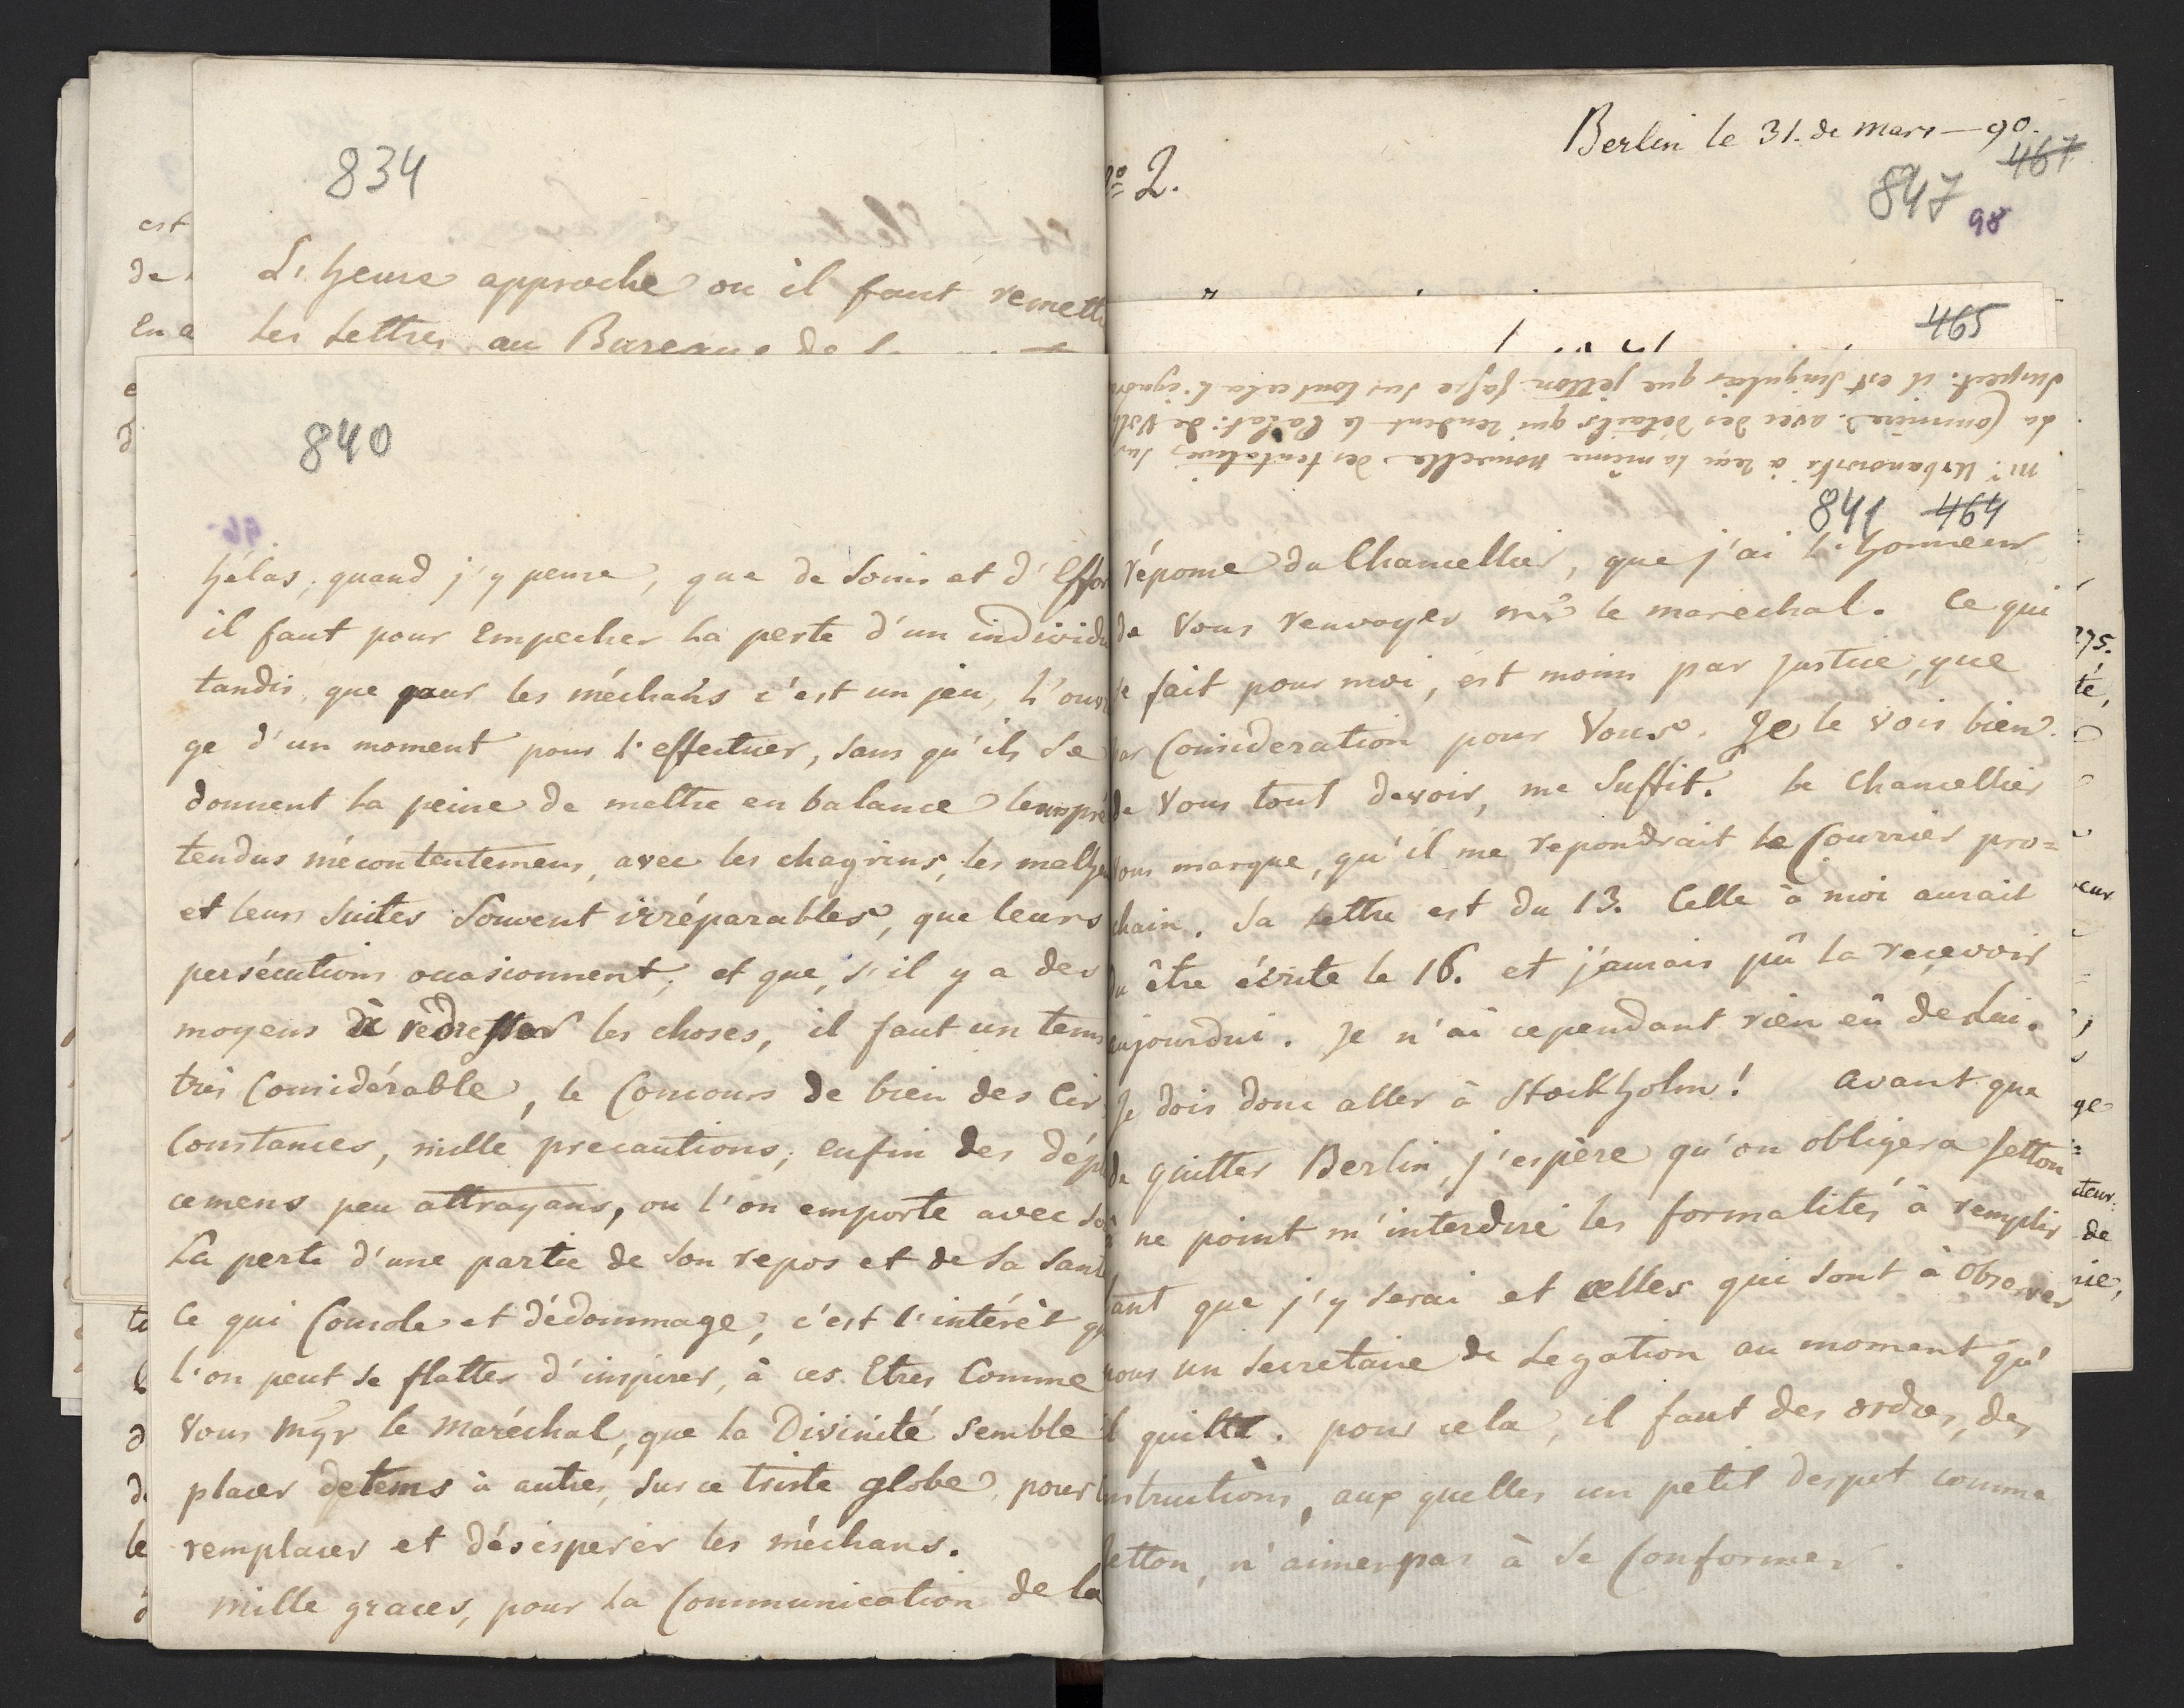 834
L'heure approche ou il faut remett
les Lettres au Bureau de
840
96
hélas, quand j'y pense, que de Soins et d'Effor
il faut pour Empecher La perte d'un individu
tandis que pour les méchans c'est un jeu, L'ouvr
ge d'un moment pour l'effectuer, sans qu'ils se
donnent La peine de mettre en balance leurs pré
tendus mécontentemens, avec les chagrins, les malhe
et leurs Suites Souvent irréparables, que leurs
persécutions occasionnent; et que, s'il y a des
moyens à redresser les choses, il faut un tems
très Considérable, le Concours de bien des Cir
Constances, mille precautions; enfin des dépla
cemens peu attrayans, ou l'on emporte avec so
La perte d'une partie de Son repos et de Sa Santé
Ce qui Console et dédommage, c'est l'intérêt q
l'on peut Se flatter d'inspirer, à ces Etres Comme
Vous Mgr le Maréchal, que la Divinité Semble
placer detems à autres, Sur ce triste globe, pour
remplacer et désésperér les méchans.
Mille graces, pour La Communication de la
Berlin le 31. de Mars — 90.
467
No 2.
847
98
465
Mr. Urbanowski à reçu la même nouvelle des tentatives sur
La Courrière, avec des détails qui rendent le Palat: de Vol
Suspect. il est Singulier que Jetton fasse sur tout cela l'ignora
841 464
réponse du Chancellier, que j'ai l'honneur
de Vous renvoyer Mgr le marechal. Ce qui
se fait pour moi, est moins par justice, que
par Consideration pour Vous. Je le vois bien.
de Vous tout devoir, me Suffit. Le Chancellier
Vous marque, qu'il me repondrait le Courrier pro=
chain. Sa Lettre est du 13. Celle à moi aurait
du être écrite le 16. et j'aurais pû la reçevoir
aujourdui. Je n'ai cependant rien eû de Lui.
Je dois donc aller à Stockholm! Avant que
de quitter Berlin, j'espère qu'on obligera Jetton
à ne point m'interdire les formalités à remplir
tant que j'y Serai et celles qui Sont à Observer
pour un Secretaire de Legation au moment qu'
il quitte. Pour cela, il faut des ordres, des
instructions, aux quelles un petit despot comme
Jetton, n'aimerpas à Se Conformer.